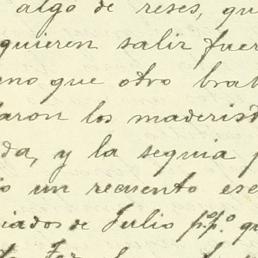 algo de reses, qu
quieren salir fuer
eno que otro bra
aron los maderist
da, y la sequia p
o un recuento es
iados de Julio p.p.º q